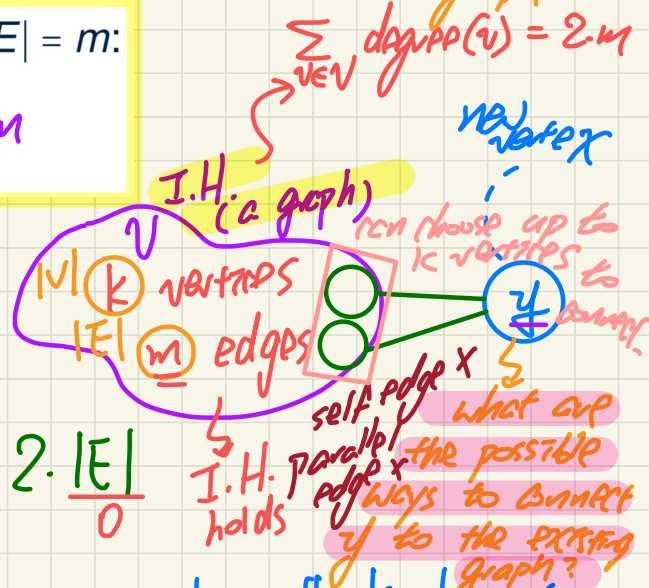 |E| = m:
Σ degree(v) = 2·m
v∈V
m
new vertex
I.H.
(a graph)
V
can choose up to
k vertices
to
connect
|V| k vertices
|E| m edges
y
self edge x
parallel
edge x
what are
the possible
ways to connect
y to the existing
graph?
2·|E|
0
I.H.
holds